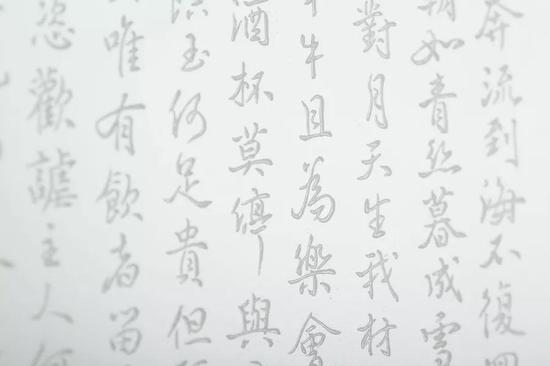 奔流到海不復回
朝如青絲暮成雪
對月天生我材
宰牛且為樂會
酒杯莫停與
玉何足貴但
唯有飲者留
恣歡謔主人何